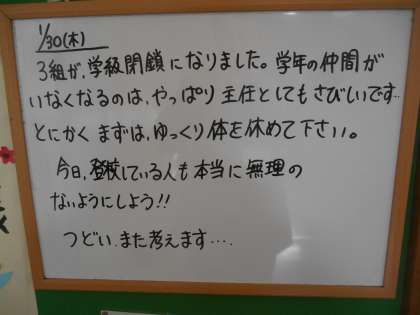 1/30(木)
3組が、学級閉鎖になりました。学年の仲間が
いなくなるのは、やっぱり主任としてもさびしいです…
とにかくまずは、ゆっくり体を休めて下さい。
今日、登校している人も本当に無理の
ないようにしよう!!
つどい、また考えます….